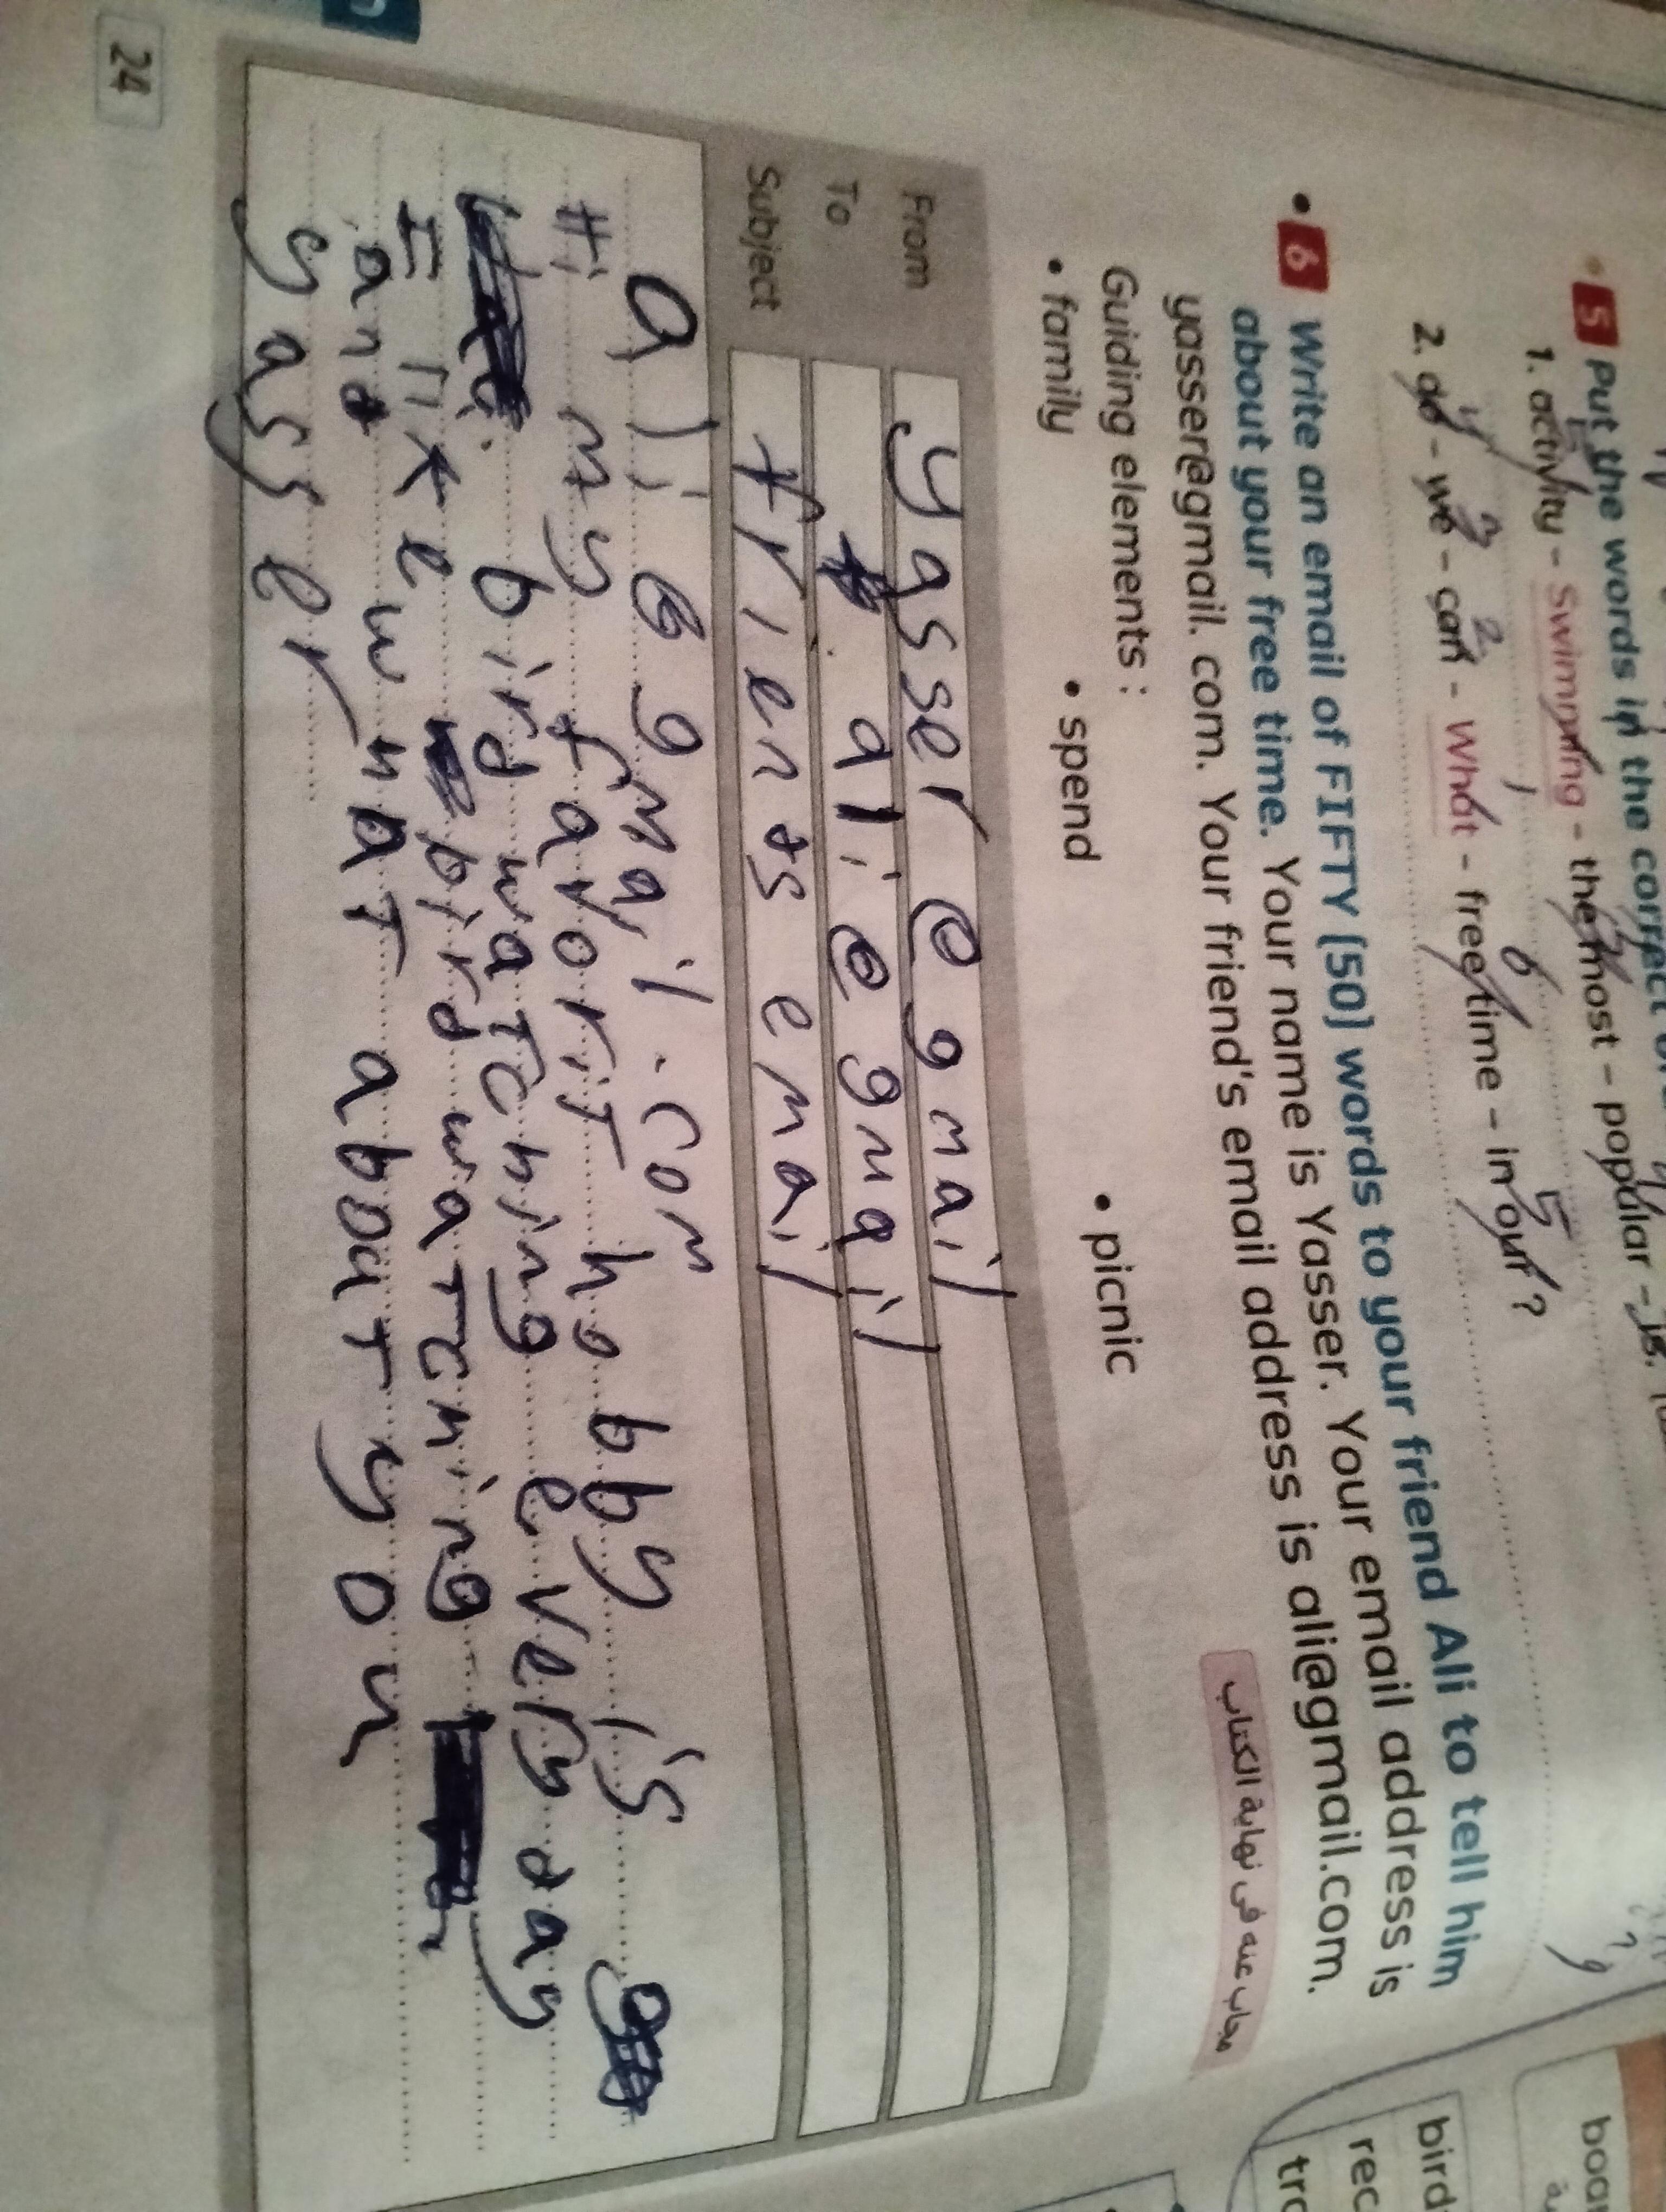 5 Put the words in the correct
1. activity - Swimming - the most - popular - is.
2. do - we - can - What - free time - in our ?
4 3 2 1 6 5
6 Write an email of FIFTY (50) words to your friend Ali to tell him
about your free time. Your name is Yasser. Your email address is
yasser@gmail. com. Your friend's email address is ali@gmail.com.
Guiding elements :
مجاب عنه فى نهاية الكتاب
• family • spend • picnic
From yasser @ gmail
To ali @ gmail
Subject friends email
ali @ gmail . com
Hi my favorit hobby is
bird watching every day
I like bird watching
and w hat about you
yasser
24
bird
rec
tra
boa